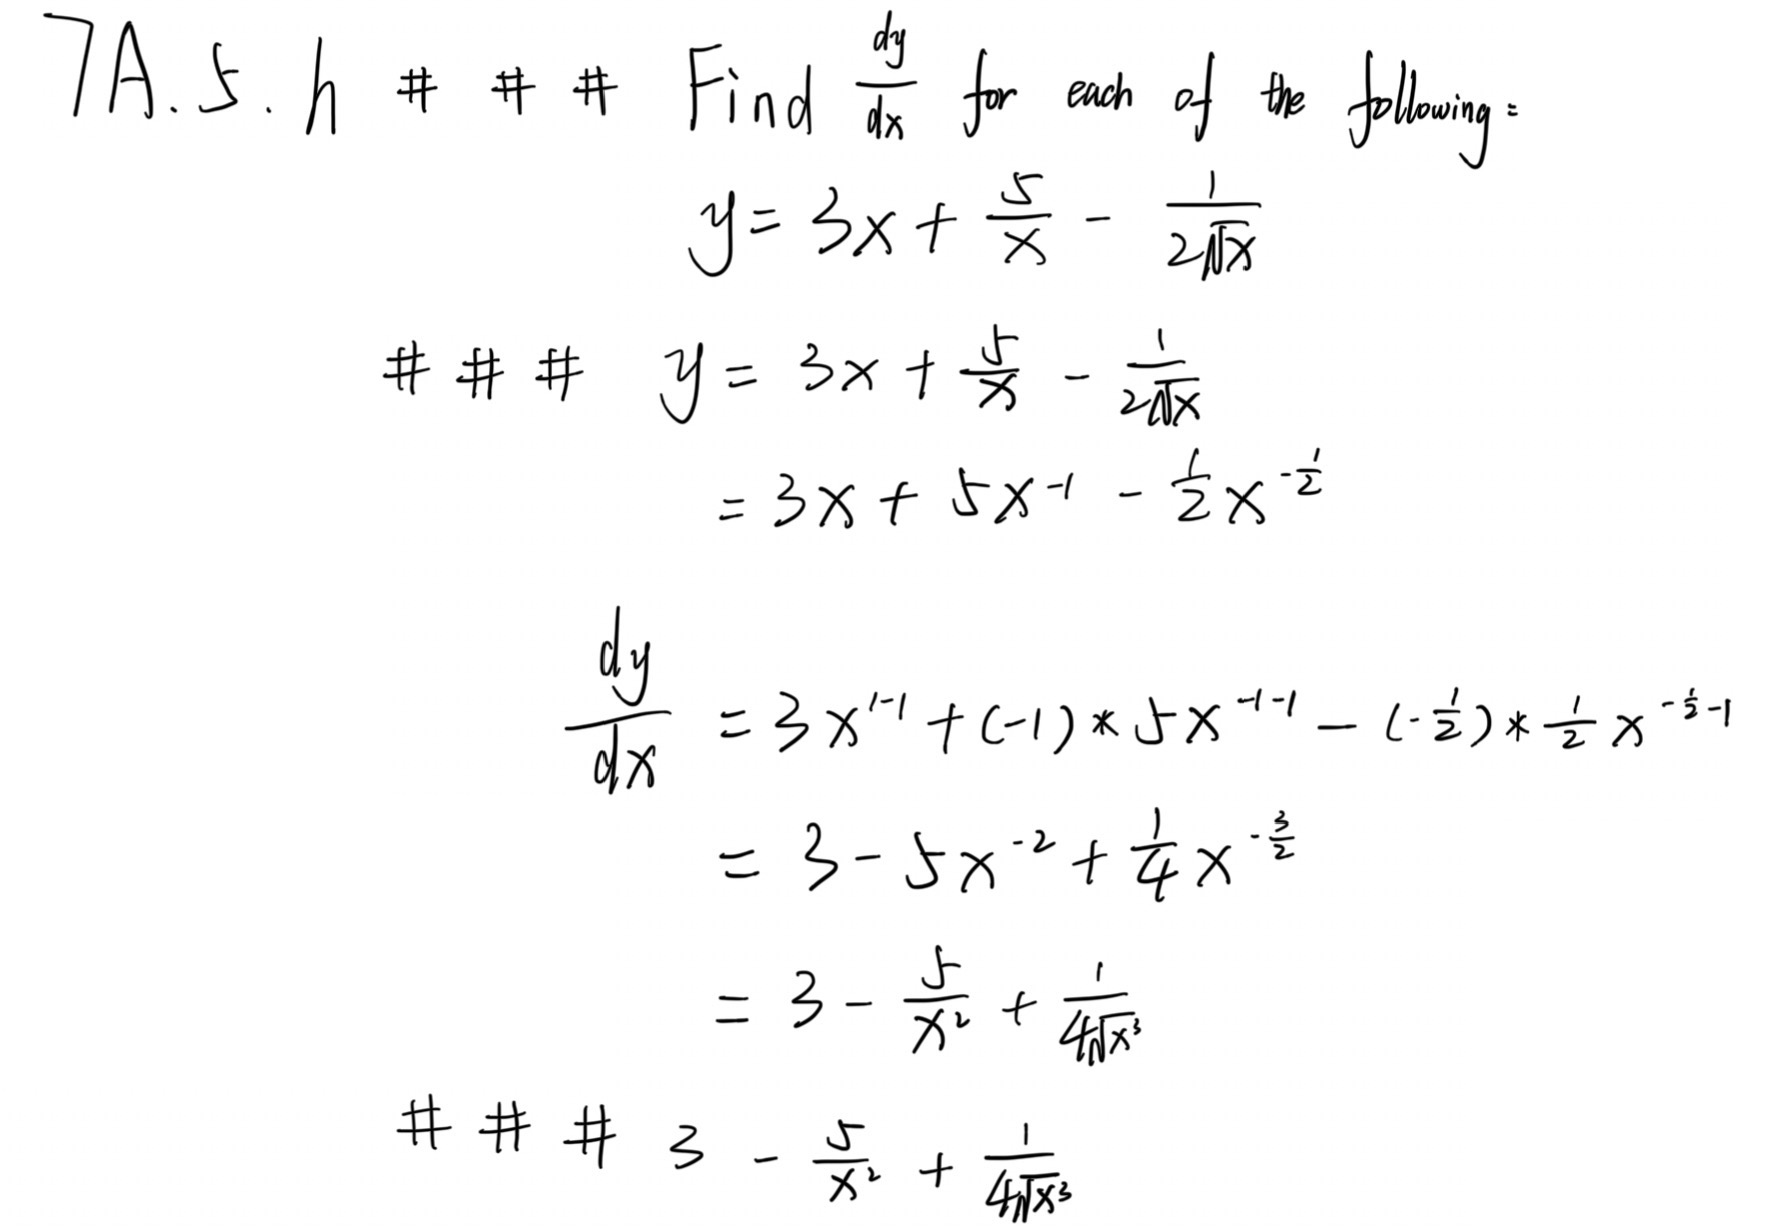 7A.5.h # # # Find \frac{dy}{dx} for each of the following:
y = 3x + \frac{5}{x} - \frac{1}{2\sqrt{x}}
# # # y = 3x + \frac{5}{x} - \frac{1}{2\sqrt{x}}
= 3x + 5x^{-1} - \frac{1}{2}x^{-\frac{1}{2}}
\frac{dy}{dx} = 3x^{1-1} + (-1) * 5x^{-1-1} - (-\frac{1}{2}) * \frac{1}{2}x^{-\frac{1}{2}-1}
= 3 - 5x^{-2} + \frac{1}{4}x^{-\frac{3}{2}}
= 3 - \frac{5}{x^2} + \frac{1}{4\sqrt{x^3}}
# # # 3 - \frac{5}{x^2} + \frac{1}{4\sqrt{x^3}}